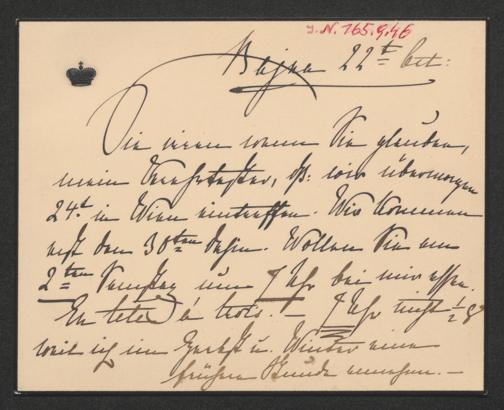 J.N. 165.946
Bajna 22t Oct:
Sie irren wenn Sie glauben,
mein Verehrtester, dß: wir übermorgen
24t in Wien eintreffen. Wir kommen
erst den 30ten dahin. Wollen Sie am
2ten Samstag um 7 Uhr bei mir essen.
En tete à trois. – 7 Uhr nicht ½ 8
weil ich im Herbst u. Winter eine
frühere Stunde annehme. –